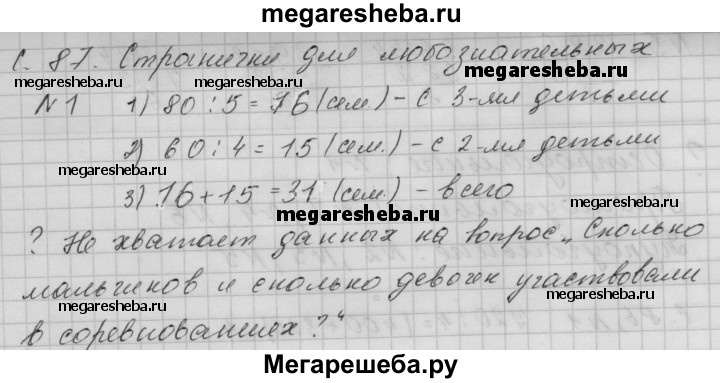 megaresheba.ru
С. 87. Странички для любознательных
megaresheba.ru
megaresheba.ru
№ 1 1) 80 : 5 = 16 (сем.) - с 3-мя детьми
megaresheba.ru
2) 60 : 4 = 15 (сем.) - с 2-мя детьми
megaresheba.ru
3) 16 + 15 = 31 (сем.) - всего
megaresheba.ru
? Не хватает данных на вопрос „ Сколько
мальчиков и сколько девочек участвовали
megaresheba.ru
megaresheba.ru
в соревнованиях ?“
Мегарешеба.ру